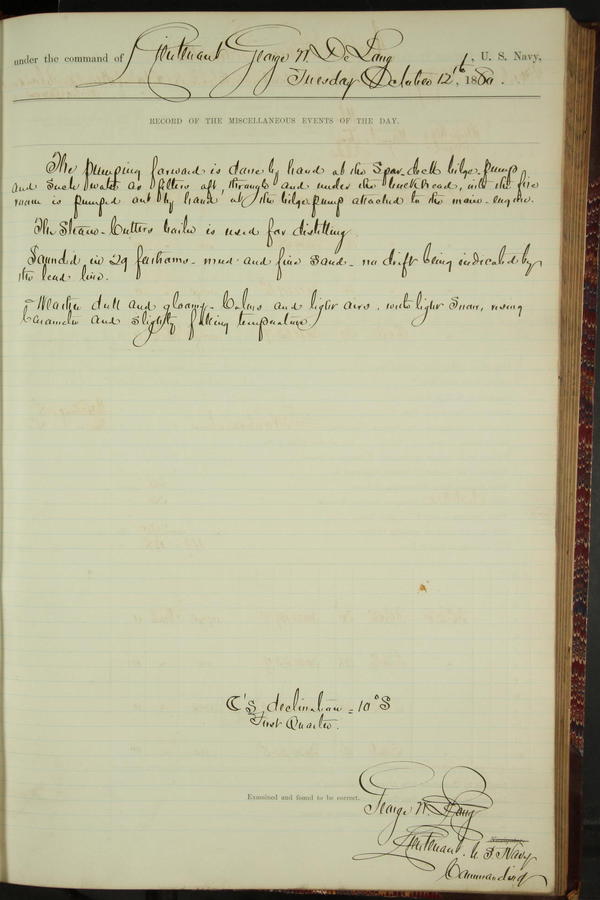 under the command of Lieutenant George W. De Long, U. S. Navy,
Tuesday October 12th, 1880.
RECORD OF THE MISCELLANEOUS EVENTS OF THE DAY.
The pumping forward is done by hand at the Spar-deck bilge-pump
and such water as filters aft, through and under the bulkhead, into the fire
room is pumped out by hand at the bilge pump attached to the main-engine.
The Steam-Cutters boiler is used for distilling.
Sounded in 29 fathoms - mud and fine sand - no drift being indicated by
the lead line.
Weather dull and gloomy. Calms and light airs, with light snow, rising
barometer and slightly falling temperature.
☾'s declination = 10° S
First Quarter.
Examined and found to be correct.
George W. De Long
Lieutenant U. S. Navy
Commanding